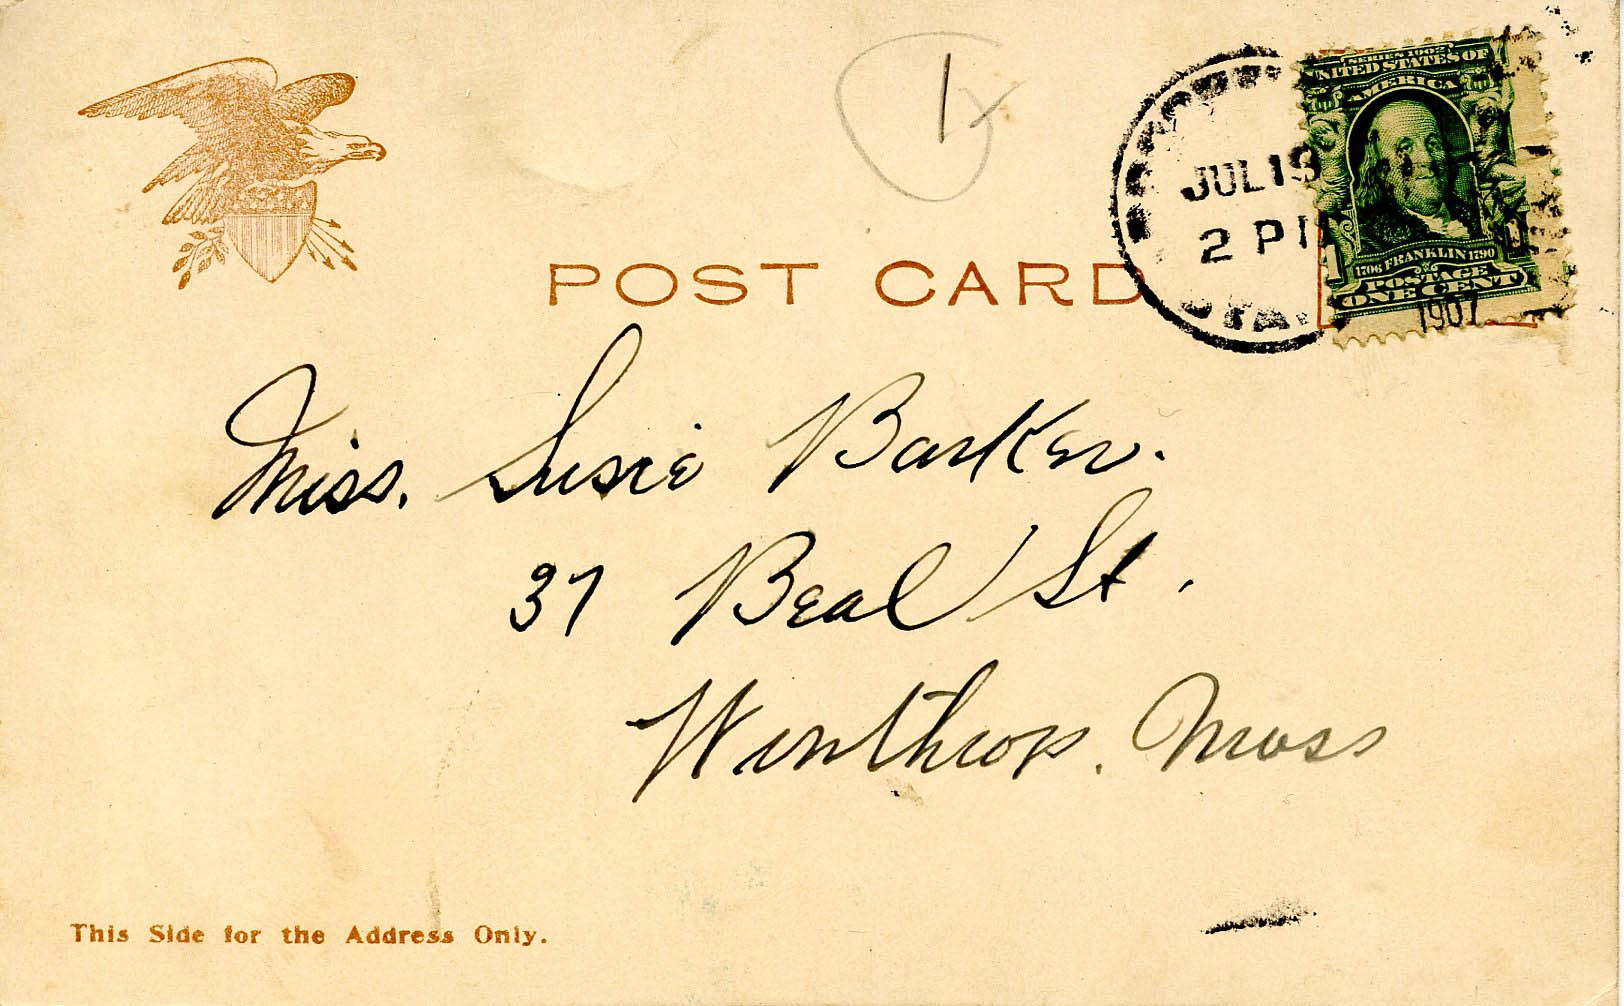 1
SERIES 1902
UNITED STATES OF
AMERICA
JUL 19
2 P
1706 FRANKLIN 1790
POSTAGE
ONE CENT
1907
POST CARD
Miss. Susie Barker.
37 Beal St.
Winthrop. Mass
This Side for the Address Only.